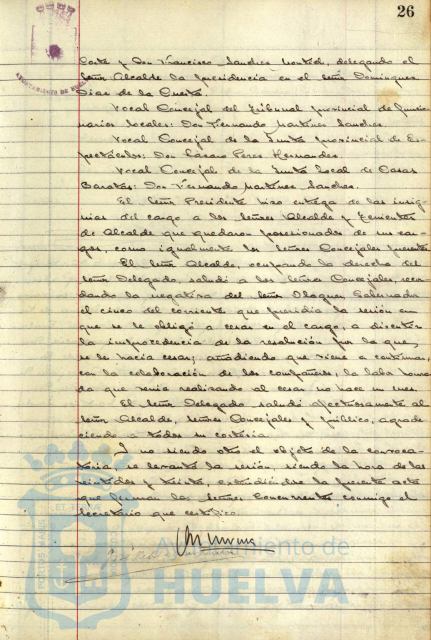 26
Corte y Don Francisco Sanchez Montiel, delegando el
Señor Alcalde la Presidencia en el Señor Dominguez
Diaz de la Cuesta.
Vocal Concejal del Tribunal Provincial de funcio-
narios locales: Don Fernando Martinez Sanchez.
Vocal Concejal de la Junta Provincial de Es-
pectáculos: Don Casaro Perez Hernandez.
Vocal Concejal de la Junta Local de Casas
Baratas: Don Fernando Martinez Sanchez.
El Señor Presidente hizo entrega de las insig-
nias del cargo a los Señores Alcalde y Tenientes
de Alcalde que quedaron posesionados de sus car-
gos, como igualmente los Señores Concejales presentes.
El Señor Alcalde, ocupando la derecha del
Señor Delegado, saludó a los Señores Concejales, recor-
dando la negativa del Señor Gobernador
el cinco del corriente que presidia la sesión en
que se le obligó a cesar en el cargo, a discutir
la improcedencia de la resolución por la que,
se le hacía cesar; añadiendo que viene a continuar,
con la colaboración de los compañeros, la labor honra-
da que venia realizando al cesar no hace un mes.
El Señor Delegado saludó afectuosamente al
Señor Alcalde, Señores Concejales y público, agrade
ciendo a todos su cortesía.
Y no siendo otro el objeto de la convoca-
toria, se levanta la sesión, siendo la hora de las
veintidos y treinta, extendiéndose la presente acta
que firman los Señores Concurrentes conmigo el
Secretario que certifico.
Ayuntamiento de
HUELVA